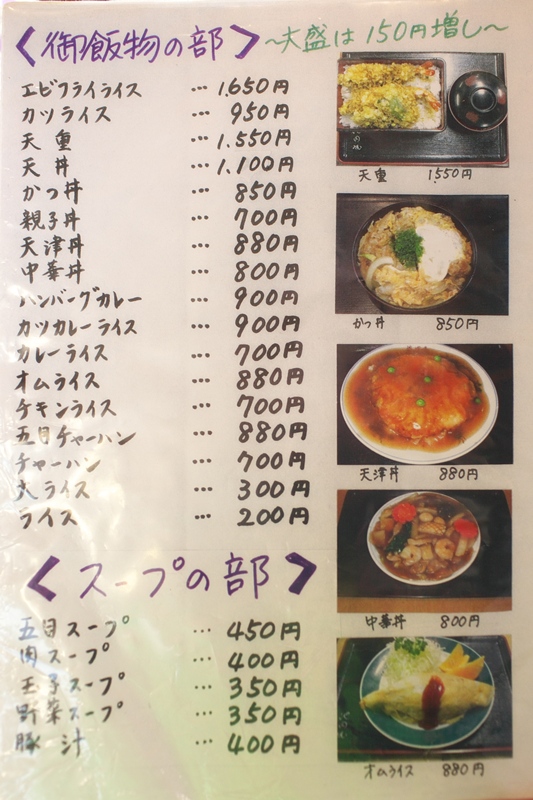 〈御飯物の部〉 〜大盛は150円増し〜
エビフライライス … 1,650円
カツライス … 950円
天重 … 1,550円
天丼 … 1,100円
かつ丼 … 850円
親子丼 … 700円
天津丼 … 880円
中華丼 … 800円
ハンバーグカレー … 900円
カツカレーライス … 900円
カレーライス … 700円
オムライス … 880円
チキンライス … 700円
五目チャーハン … 880円
チャーハン … 700円
大ライス … 300円
ライス … 200円
〈スープの部〉
五目スープ … 450円
肉スープ … 400円
玉子スープ … 350円
野菜スープ … 350円
豚汁 … 400円
天重 1,550円
かつ丼 850円
天津丼 880円
中華丼 800円
オムライス 880円